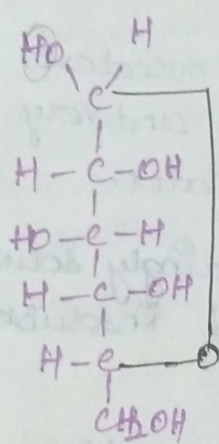 HO H
C
H-C-OH
HO-C-H
H-C-OH
H-C O
CH2OH